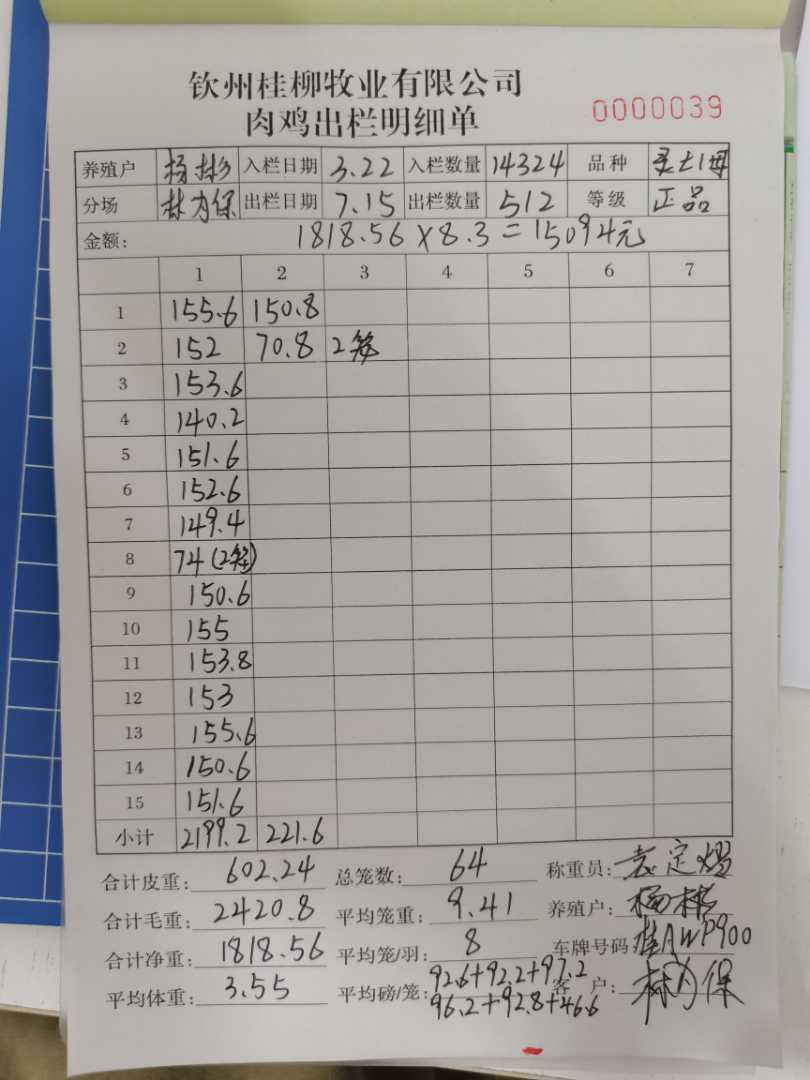 钦州桂柳牧业有限公司
肉鸡出栏明细单
0000039
养殖户 杨彬 入栏日期 3.22 入栏数量 14324 品种
分场 林为保 出栏日期 7.15 出栏数量 512 等级 正品
金额: 1818.56×8.3=15094元
1 2 3 4 5 6 7
1 155.6 150.8
2 152 70.8 2笼
3 153.6
4 140.2
5 151.6
6 152.6
7 149.4
8 74(2笼)
9 150.6
10 155
11 153.8
12 153
13 155.6
14 150.6
15 151.6
小计 2199.2 221.6
合计皮重: 602.24 总笼数: 64 称重员:
合计毛重: 2420.8 平均笼重: 9.41 养殖户: 杨彬
合计净重: 1818.56 平均笼/羽: 8 车牌号码: 桂AWP900
平均体重: 3.55 平均磅/笼: 92.6+92.2+97.2 客户: 林为保
96.2+92.8+46.6